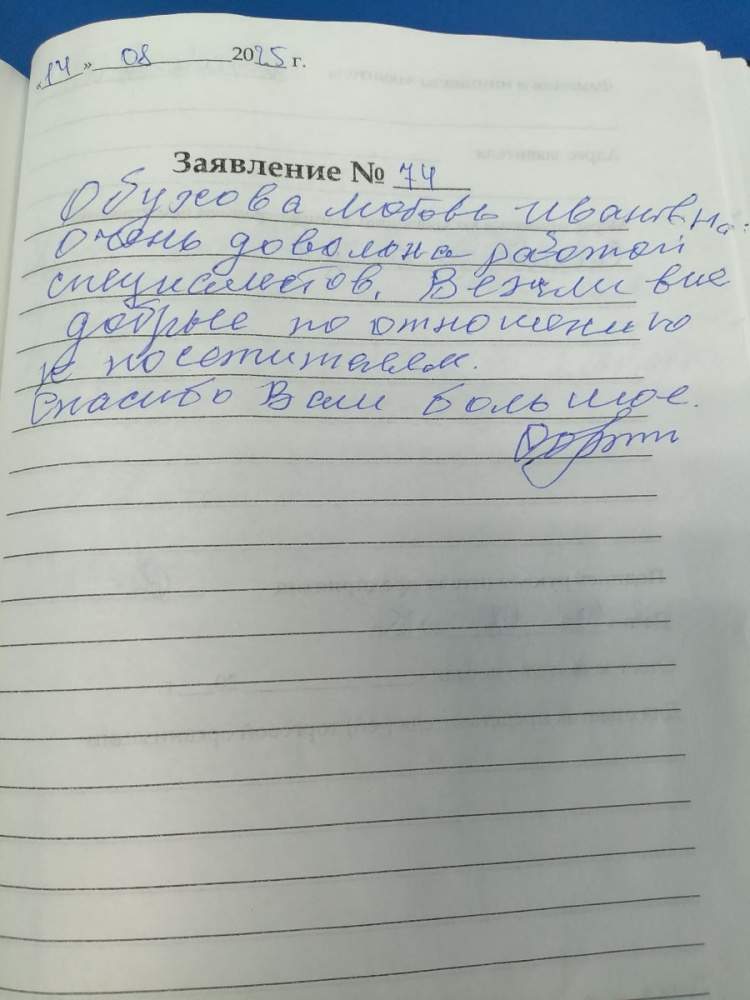 «14» 08 2025 г.
Заявление № 74
Обухова Любовь Ивановна:
очень довольна работой
специалистов. Вежли вые
добрые по отношению
к посетителям.
Спасибо Вам большое.